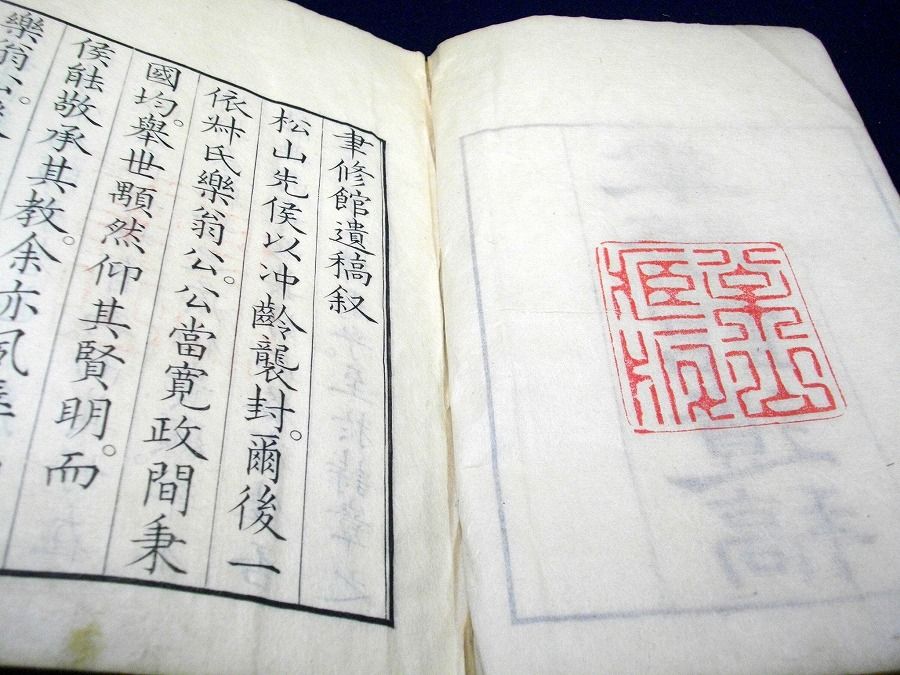 聿修館遺稿叙
松山先侯以冲齡襲封。爾後一
依叔氏樂翁公。公當寛政間秉
國均。舉世顒然仰其賢明。而
侯能敬承其教。余亦夙
樂翁公